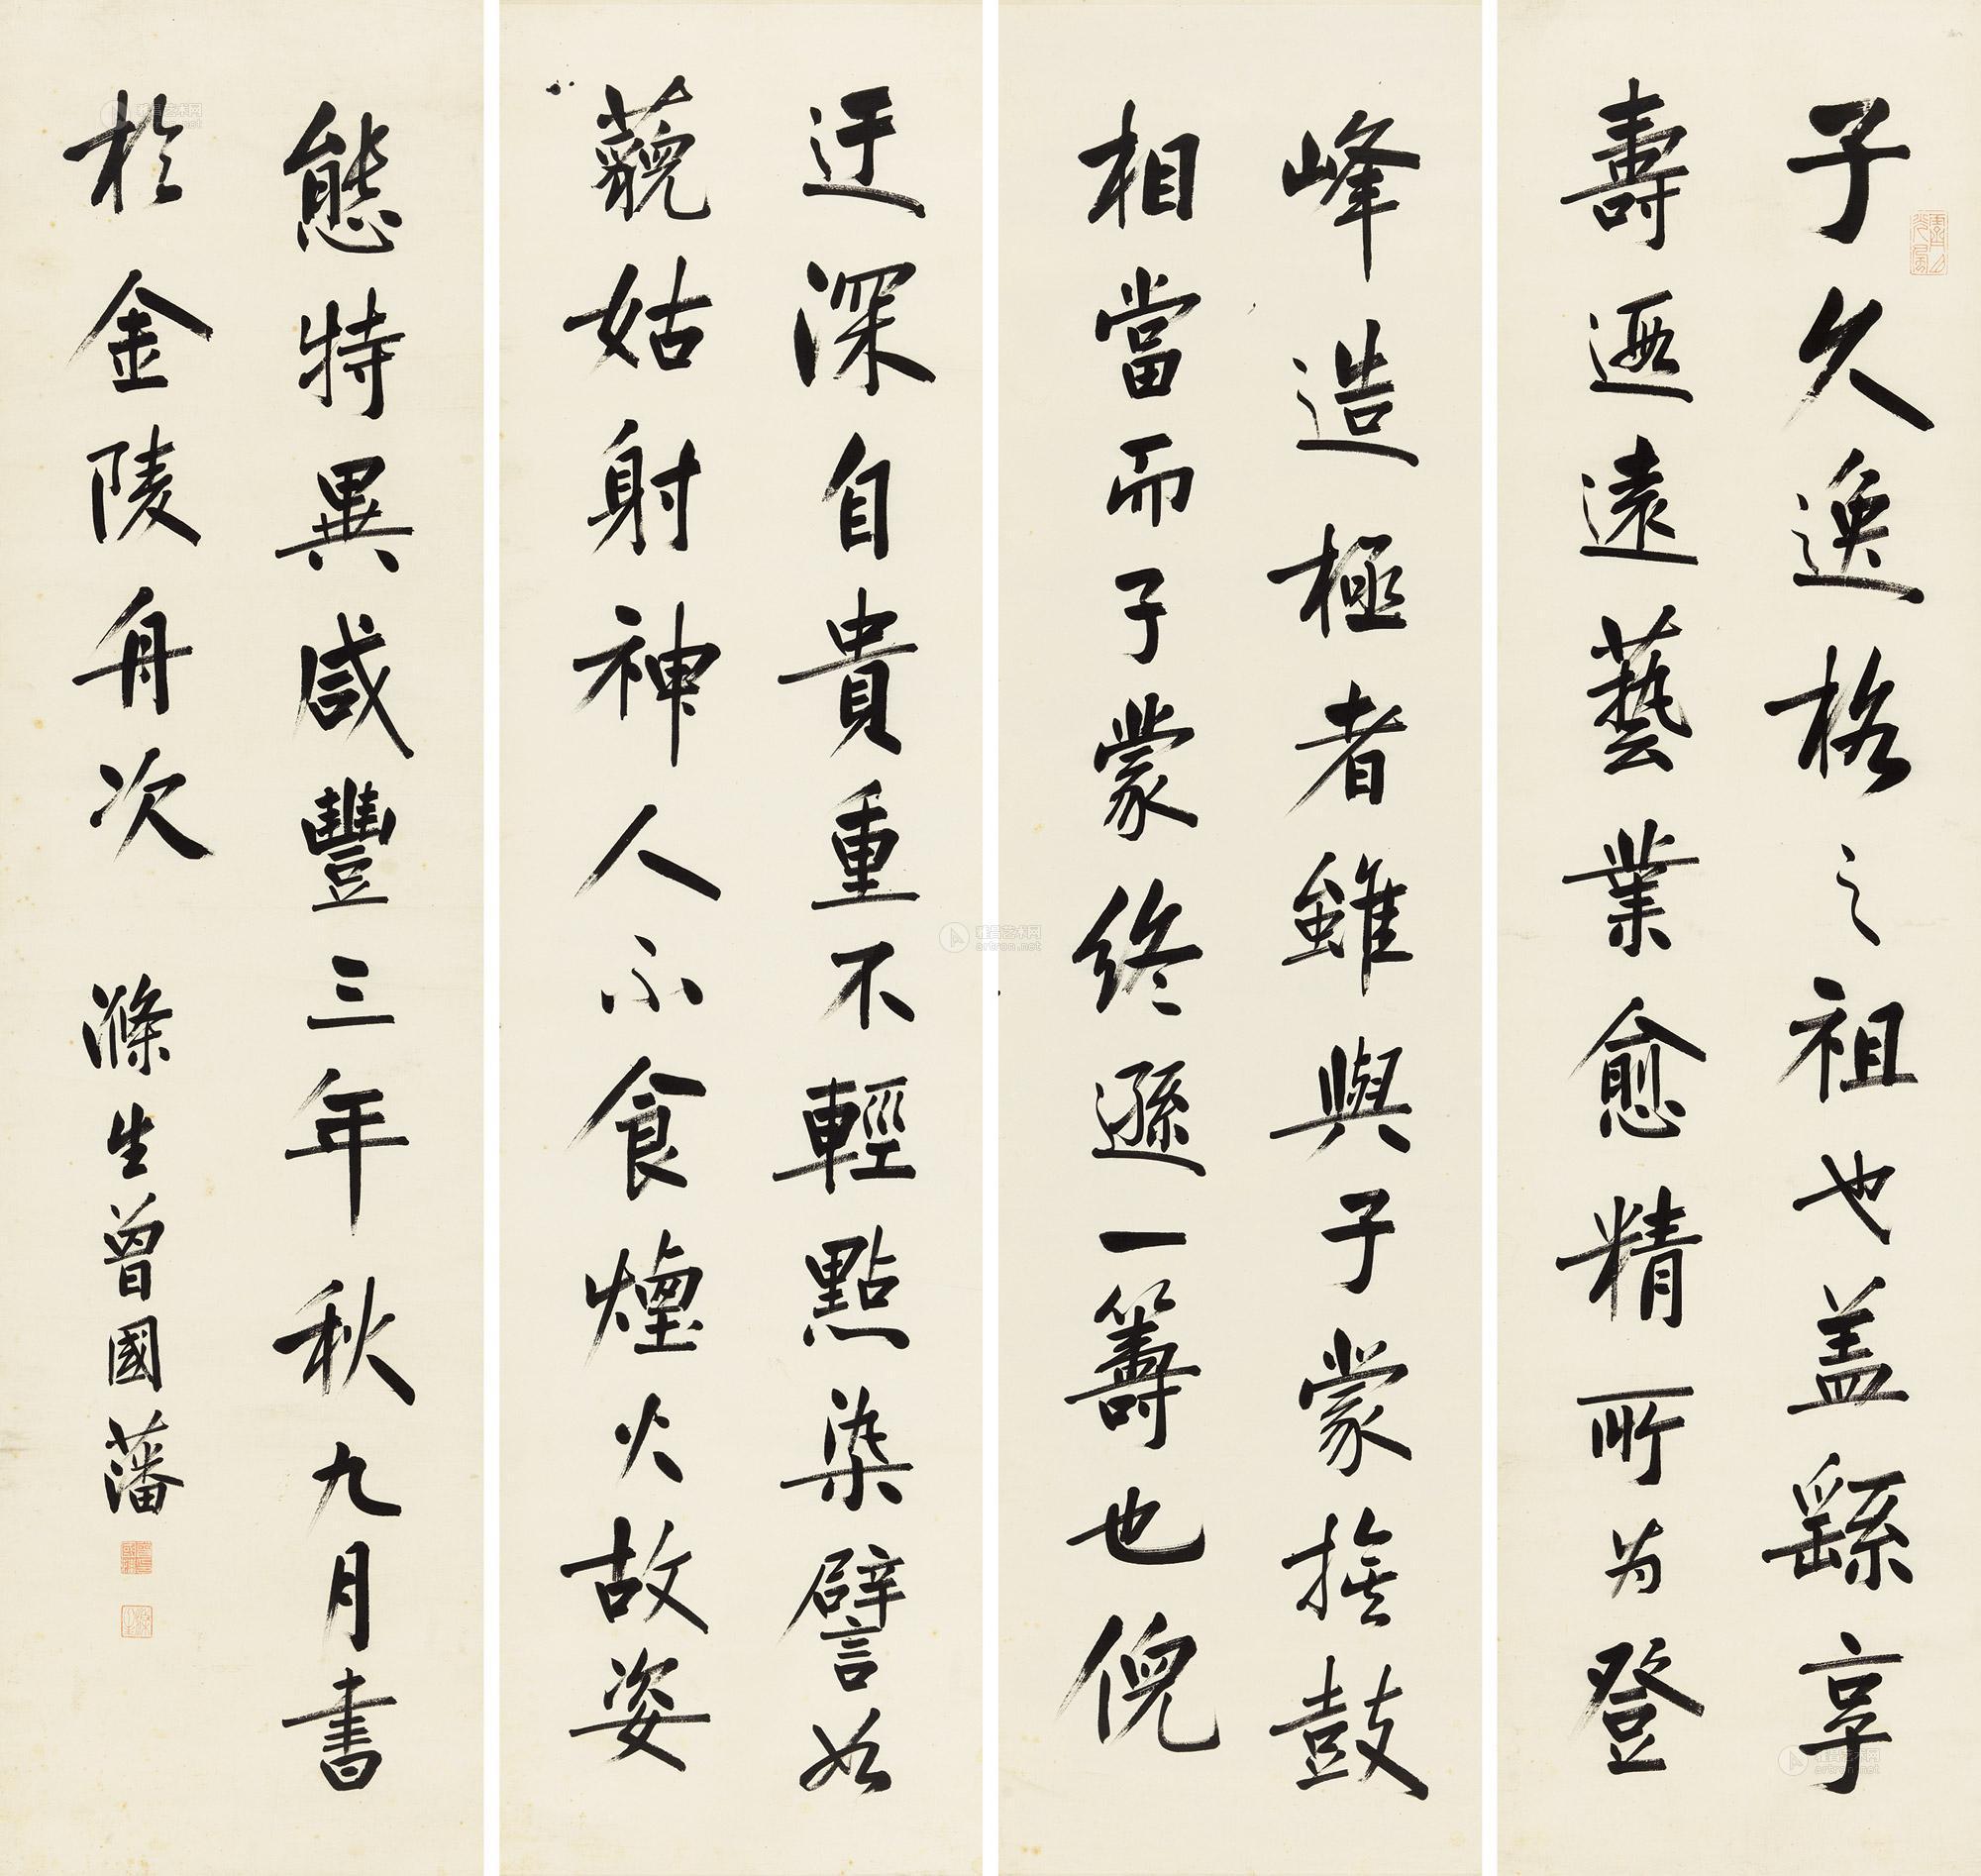 子久逸格之祖也盖繇享
壽遐遠藝業愈精所为登
峰造極者雖與子蒙旗鼓
相當而子蒙終遜一籌也倪
迂深自貴重不輕點染譬如
藐姑射神人不食煙火故姿
態特異咸豐三年秋九月書
於金陵舟次 滌生曾國藩
雅昌艺术网
artron.net